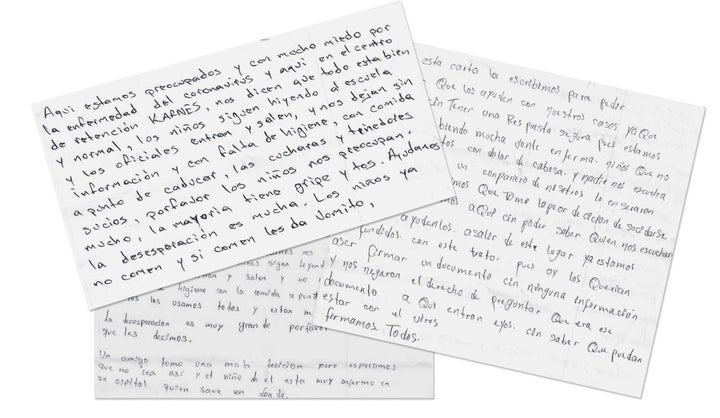 Aqui estamos preocupados y con mucho miedo por
la enfermedad del coronavirus y aqui en el centro
de retención KARNES, nos dicen que todo esta bien
y normal, los niños siguen hiyendo al escuela
y los oficiales entran y salen, y nos dejan sin
información y con falta de higiene, con comida
a punto de caducar, las cucharas y tenedores
sucios, porfavor los niños nos preocupan.
mucho, la mayoria tiene gripe y tos. Ayudanos
la desesperación es mucha. Los niños ya
no comen y si comen les da vomito,
esta carta la escribimos para pedir
Que los ayuden con nuestros casos ya Que
cin Tener una Respuesta segura pues estamos
biendo mucha Jente enferma. niños Que no
tos con dolor de cabesa. y nadie nos escucha
un companero de nosotros lo enseraron
mos Que Tome la peor de cicion de
aQui cin poder saber Quien nos escuchan
ayudenlos. a salir de este lugar ya estamos
fundidos. con este trato. pues oy los Querian
aser firmar un documento cin ninguna informacion
y nos negaron el derecho de preguntar Que era ese
documento a Qui entran ellos. cin saber Que puedan
estar con el virus
firmamos Todos.
sigen
y salen y no
higiene con la comida a punt
los usamos todos y estan m
La desesperacion es muy grande porfavor
que les decimos.
Un amigo tomo una mala decision pero esperamos
que no cea asi y el niño de el esta muy enfermo en
un ospital quien save en donde.